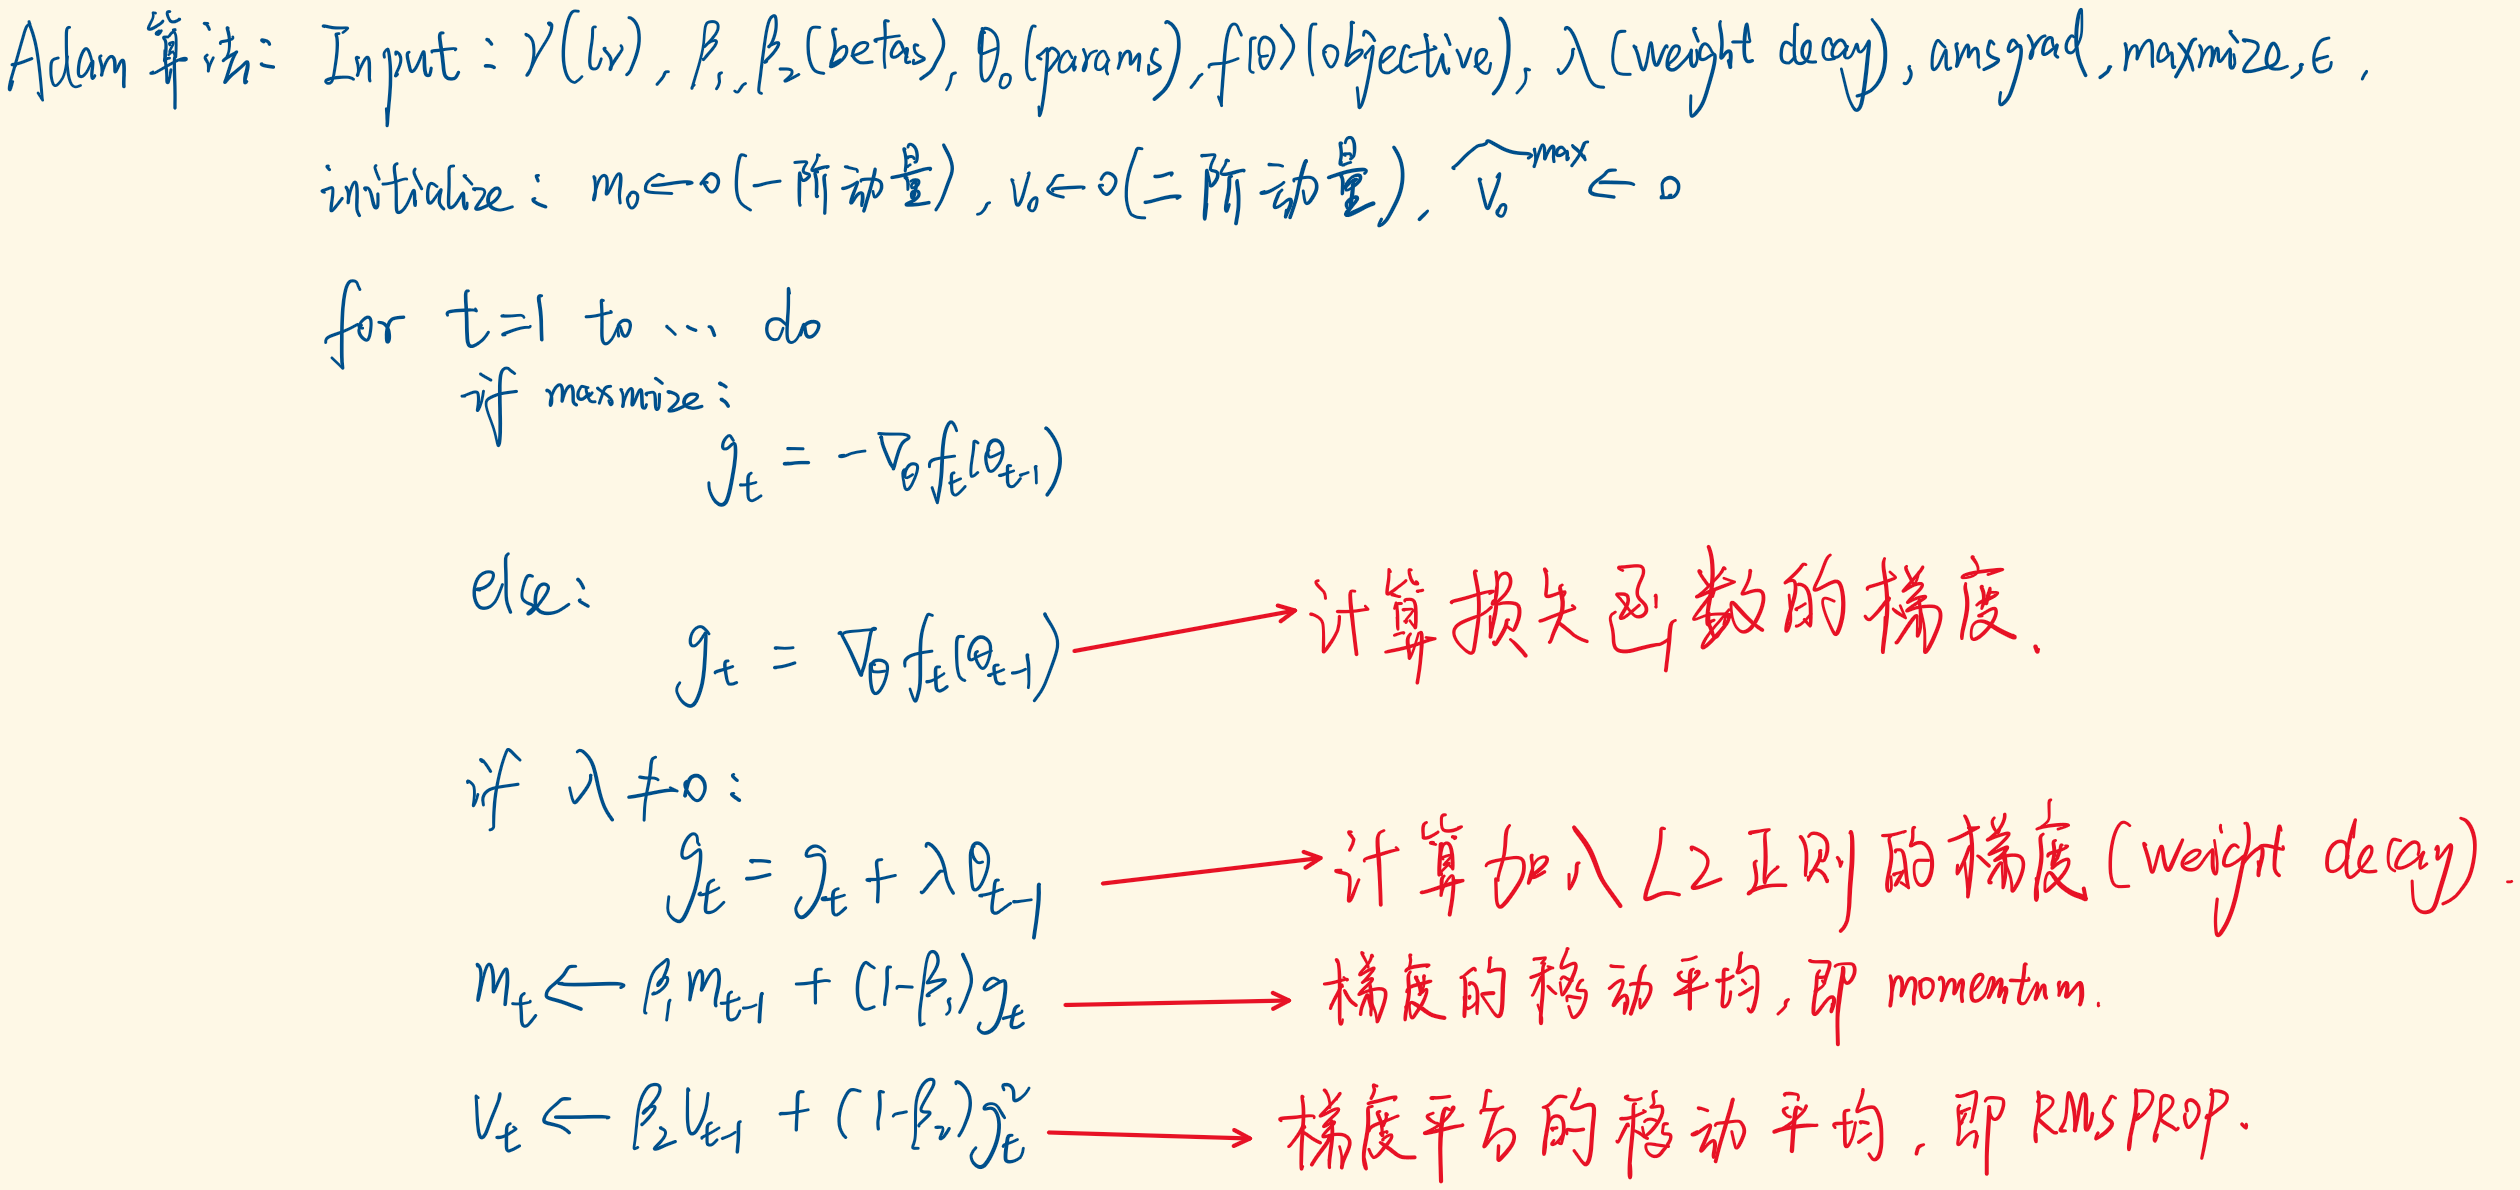 Adam 算法: Input: γ(lr), β₁, β₂(betas), θ₀(params), f(θ)(objective), λ(weight decay), amsgrad, maximize, ε.
initialize: m₀←0(一阶动量), v₀←0(二阶动量), v̂₀ᵐᵃˣ←0
for t=1 to ... do
if maximize:
g_t = -∇_θ f_t(θ_{t-1})
else:
g_t = ∇_θ f_t(θ_{t-1}) → 计算损失函数的梯度.
if λ≠0:
g_t = g_t + λθ_{t-1} → 计算加入L2正则的梯度(weight decay).
m_t ← β₁m_{t-1} + (1-β₁)g_t → 梯度的移动平均, 即 momentum.
v_t ← β₂v_{t-1} + (1-β₂)g_t² → 梯度平方的移动平均, 即 RMSProp.